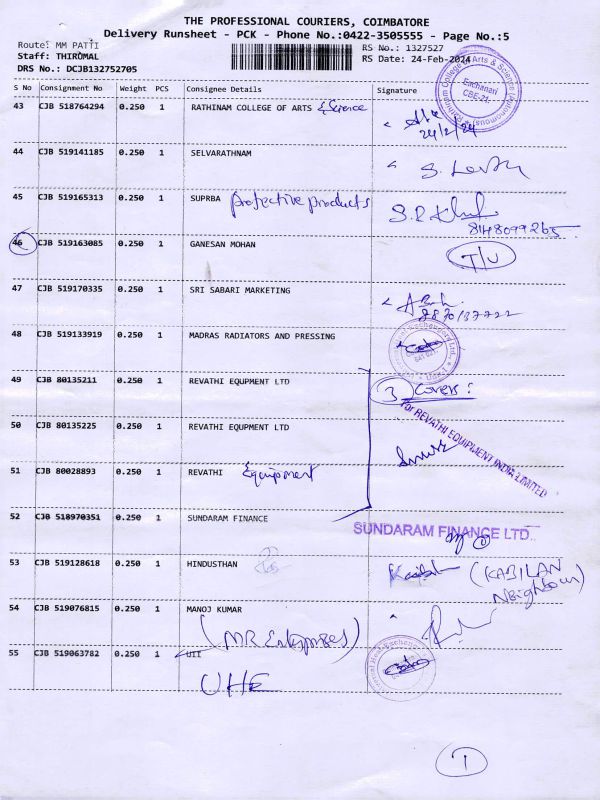 THE PROFESSIONAL COURIERS, COIMBATORE
Delivery Runsheet - PCK - Phone No.:0422-3505555 - Page No.:5
Route: MM PATTI
RS No.: 1327527
Staff: THIROMAL
RS Date: 24-Feb-2024
DRS No.: DCJB132752705
S No Consignment No Weight PCS Consignee Details Signature
43 CJB 518764294 0.250 1 RATHINAM COLLEGE OF ARTS & Science
24/2/24
44 CJB 519141185 0.250 1 SELVARATHNAM
45 CJB 519165313 0.250 1 SUPRBA protective products
8148099265
46 CJB 519163085 0.250 1 GANESAN MOHAN T/U
47 CJB 519170335 0.250 1 SRI SABARI MARKETING
48 CJB 519133919 0.250 1 MADRAS RADIATORS AND PRESSING
49 CJB 80135211 0.250 1 REVATHI EQUPMENT LTD 3 Covers
For REVATHI EQUIPMENT INDIA LIMITED
50 CJB 80135225 0.250 1 REVATHI EQUPMENT LTD
51 CJB 80028893 0.250 1 REVATHI Equipment
52 CJB 518970351 0.250 1 SUNDARAM FINANCE
SUNDARAM FINANCE LTD.
53 CJB 519128618 0.250 1 HINDUSTHAN (KABILAN
Neighbour)
54 CJB 519076815 0.250 1 MANOJ KUMAR
(MR Enterprises)
55 CJB 519063782 0.250 1 UII
UHE
1